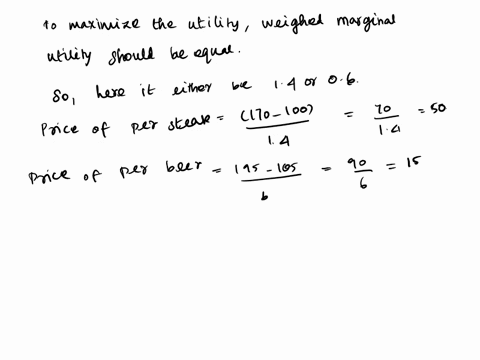 to maximize the utility, weighed marginal
utility should be equal.
So, here it either be 1.4 or 0.6.
Price of per steak = (170-100) / 1.4 = 70 / 1.4 = 50
Price of per beer = 195-105 / 6 = 90 / 6 = 15